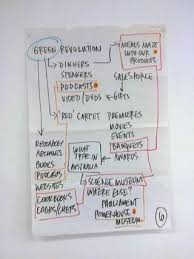 GREEN REVOLUTION
DINNERS
SPEAKERS
PODCASTS
VIDEO/DVDS
GIFTS
MEALS MADE
WITH OUR
PRODUCTS
SALES FORCE
'RED' CARPET PREMIERES
MOVIES
EVENTS
BANQUETS
AWARDS
WHAT
TYPE IN
AUSTRALIA
RETAILER
ARCHIVES
BOOKS
PODCASTS
WEBSITES
COOKBOOKS
COOKS/CHEFS
SCIENCE MUSEUM
WHERE ELSE?
PARLIAMENT
POWERHOUSE
MUSEUM
6